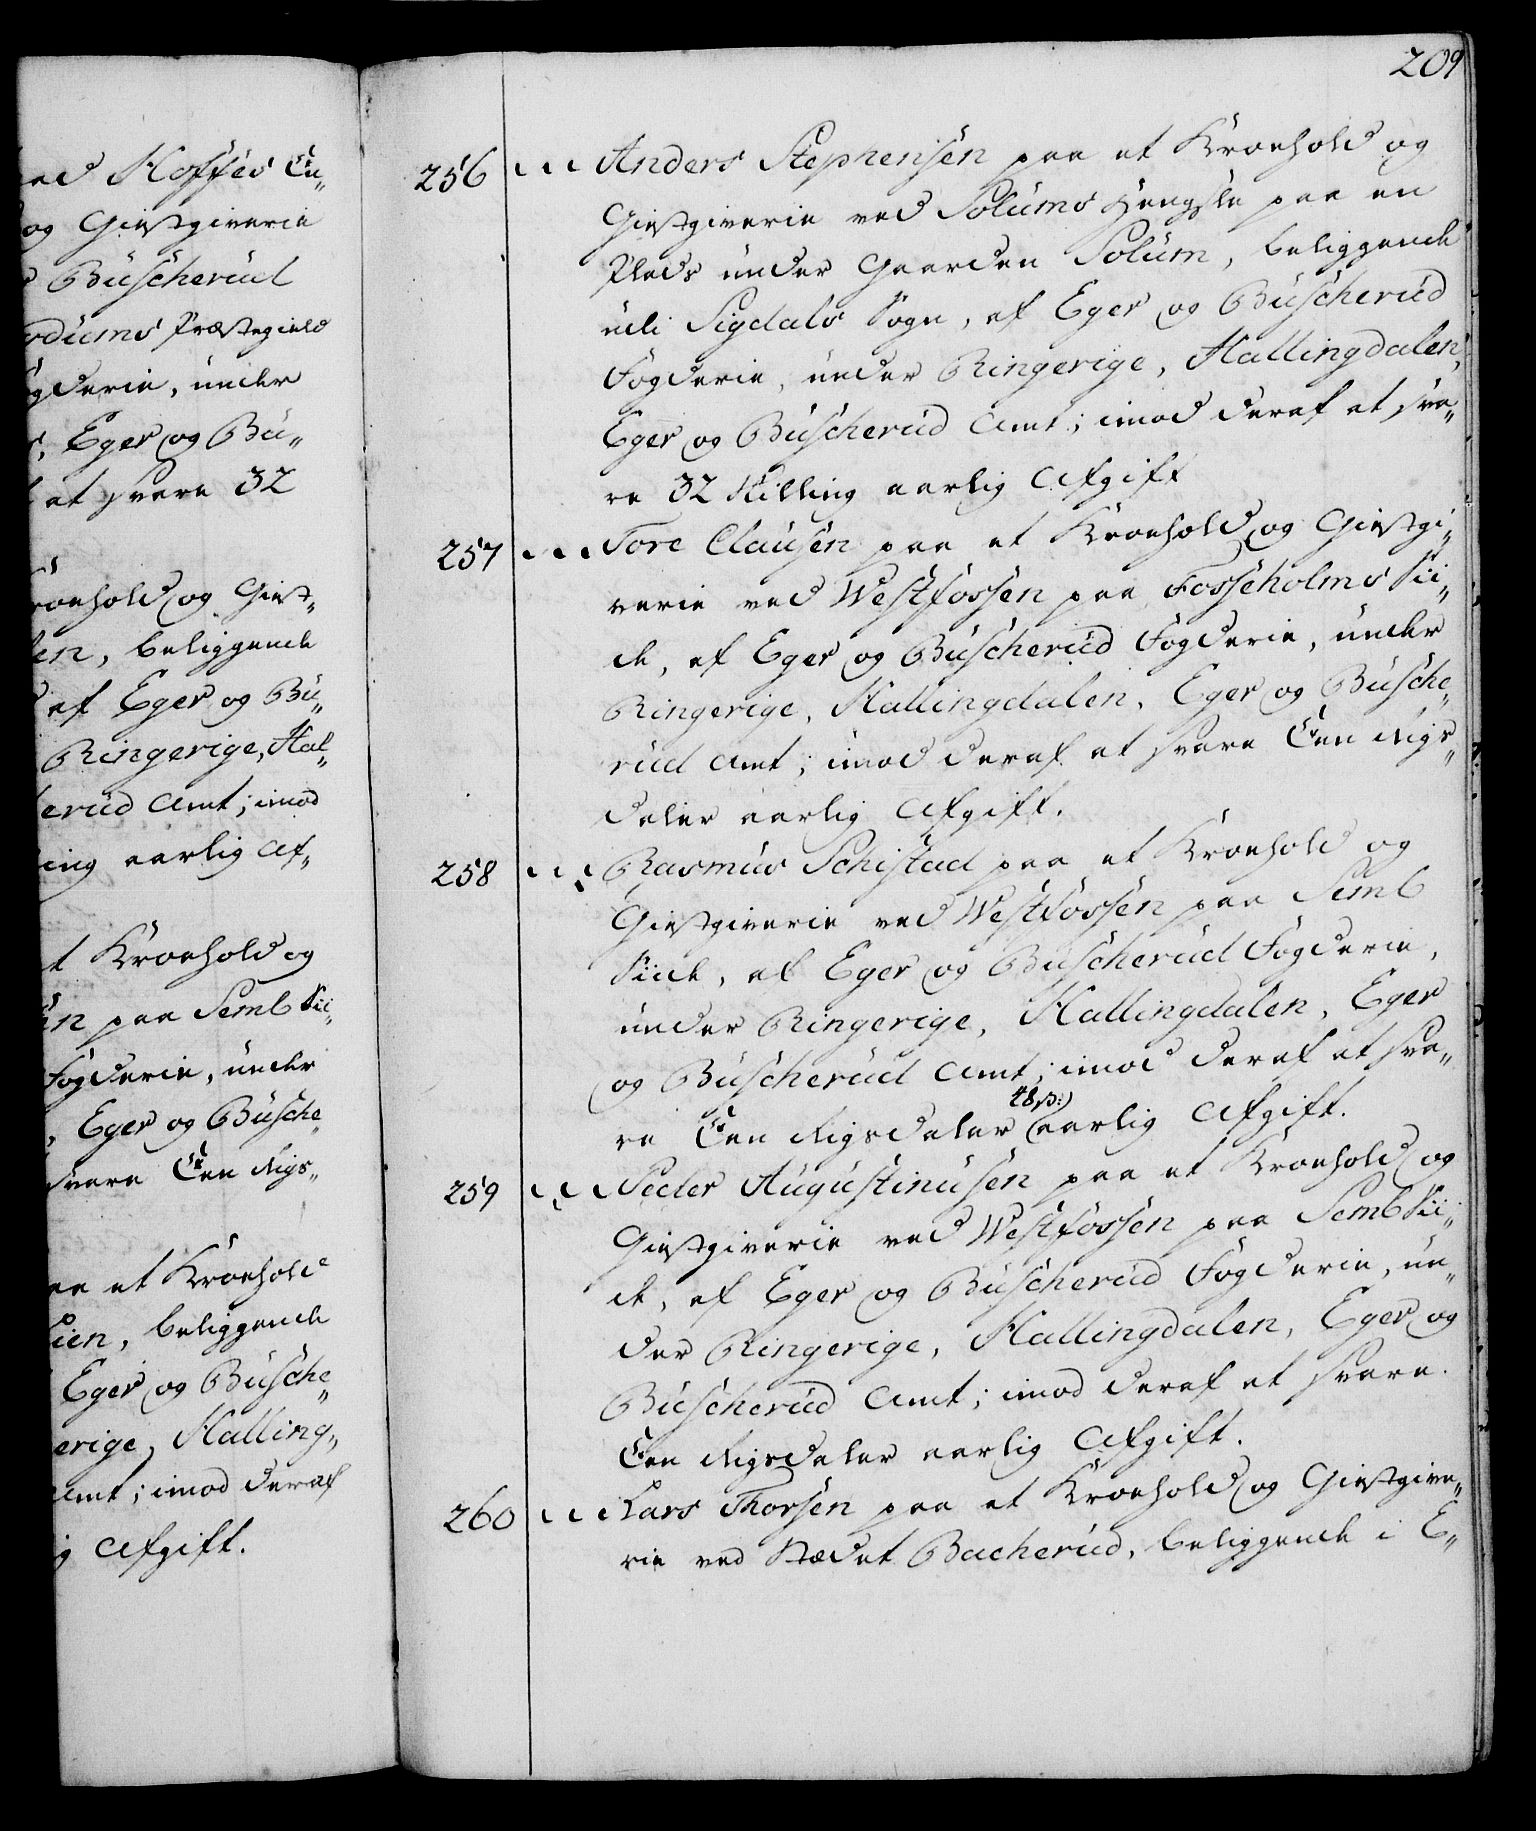 ved Hoffes En„
og Giestgiverie
Buscherud
Præstegield
Fogderie, under
Eger og Bu„
at svare 32
Kroehold og Giest„
beliggende
af Eger og Bu„
Ringerige, Hal„
erud Amt; imod
ing aarlig Af„
t Kroehold og
en paa Semb Sii„
Fogderie, under
, Eger og Busche„
svare Een Rigs„
paa et Kroehold
ien, beliggende
Eger og Busche„
erige, Halling„
Amt; imod deraf
g Afgift.
209
256 „ „ Anders Stephensen paa et Kroehold og
Giestgiverie ved Solums Hengsle paa en
Plads under Gaarden Solum, beliggende
udi Sigdals Sogn, af Eger og Buscherud
Fogderie, under Ringerige, Hallingdalen,
Eger og Buscherud Amt; imod deraf at sva„
re 32 Skilling aarlig Afgift
257 „ „ Tore Clausen paa et Kroehold og Giestgi„
verie ved Westfossen paa Fosseholms Sii„
de, af Eger og Buscherud Fogderie, under
Ringerige, Hallingdalen, Eger og Busche„
rud Amt; imod deraf at svare Een Rigs„
daler aarlig Afgift.
258 „ „ Rasmus Schistad paa et Kroehold og
Giestgiverie ved Westfossen paa Semb
Siide, af Eger og Buscherud Fogderie,
under Ringerige, Hallingdalen, Eger
og Buscherud Amt; imod deraf at sva„
48 ß:)
re Een Rigsdaler aarlig Afgift.
259 „ „ Peder Augustinusen paa et Kroehold og
Giestgiverie ved Westfossen paa Semb Sii„
de, af Eger og Buscherud Fogderie, un„
der Ringerige, Hallingdalen, Eger og
Buscherud Amt; imod deraf at svare
Een Rigsdaler aarlig Afgift.
260 „ „ Lars Thorsen paa et Kroehold og Giestgive„
rie ved Stædet Bacherud, beliggende i E„